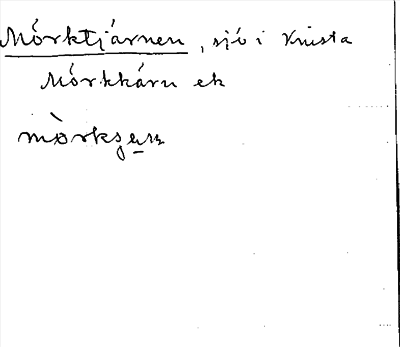 Mörktjärnen, sjö i Knista
Mörkkärn ek
mòrkɡ̣æ̣ɳ